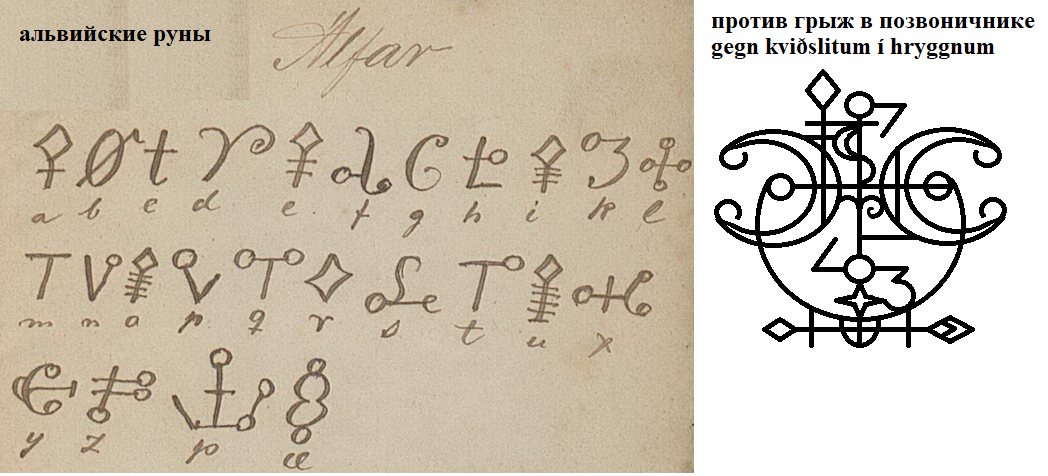 альвийские руны
Alfar
a b c d e f g h i k l
m n o p q r s t u x
y z þ æ
против грыж в позвоничнике
gegn kviðslitum í hryggnum